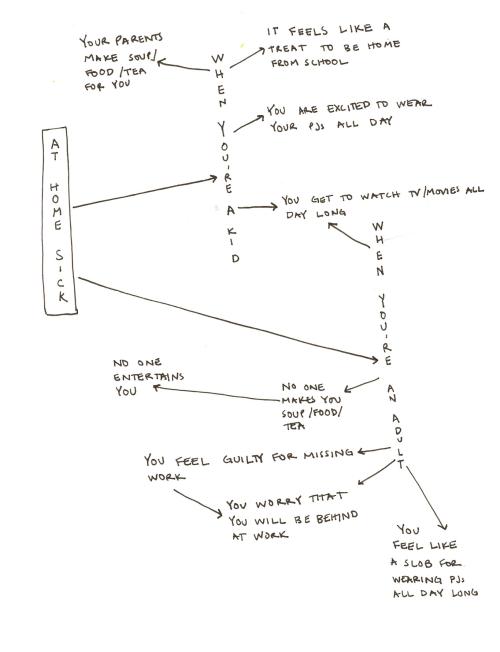 YOUR PARENTS
MAKE SOUP/
FOOD/TEA
FOR YOU
IT FEELS LIKE A
TREAT TO BE HOME
FROM SCHOOL
WHEN YOU'RE A KID
YOU ARE EXCITED TO WEAR
YOUR PJS ALL DAY
AT HOME SICK
YOU GET TO WATCH TV/MOVIES ALL
DAY LONG
WHEN YOU'RE AN ADULT
NO ONE
ENTERTAINS
YOU
NO ONE
MAKES YOU
SOUP/FOOD/
TEA
YOU FEEL GUILTY FOR MISSING
WORK
YOU WORRY THAT
YOU WILL BE BEHIND
AT WORK
YOU
FEEL LIKE
A SLOB FOR
WEARING PJS
ALL DAY LONG